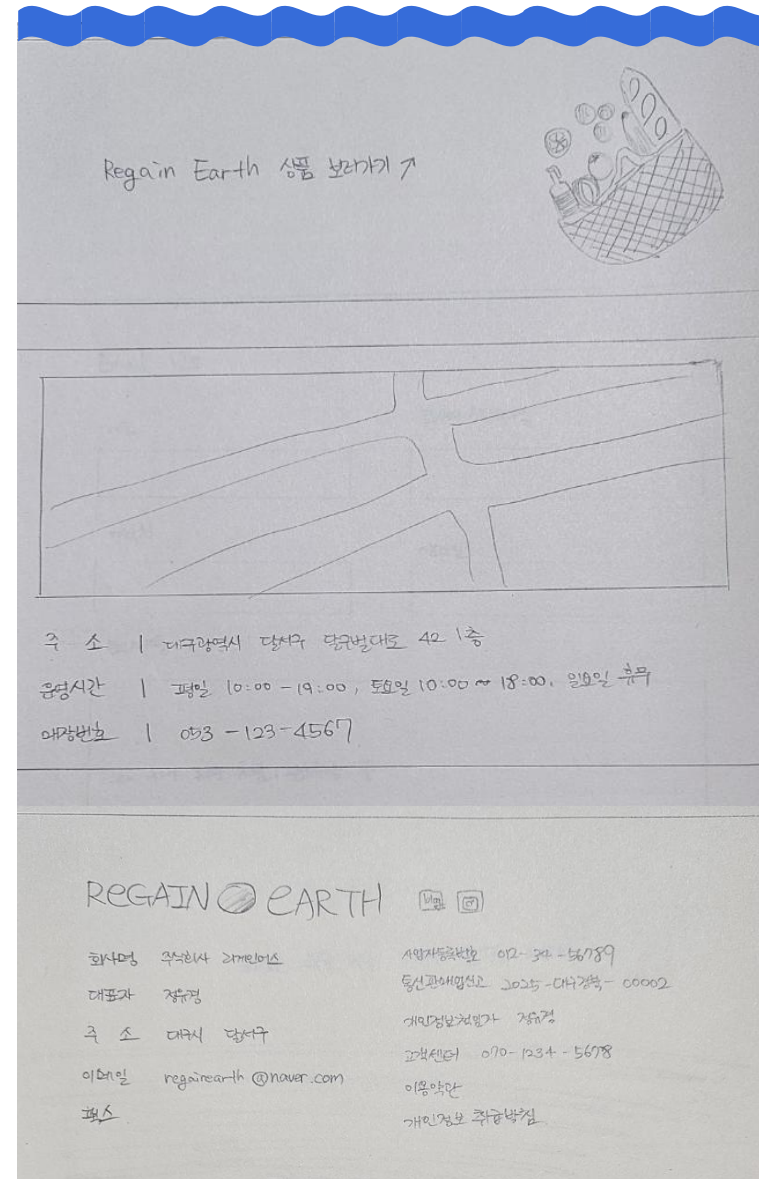 Regain Earth 상품 보러가기 ↗
주 소 | 대구광역시 달서구 달구벌대로 42 1층
운영시간 | 평일 10:00 - 19:00, 토요일 10:00 ~ 18:00, 일요일 휴무
매장번호 | 053 - 123 - 4567
REGAIN EARTH blog
회사명 주식회사 리게인어스
대표자 정유경
주 소 대구시 달서구
이메일 regainearth @naver.com
팩스
사업자등록번호 012 - 34 - 56789
통신판매업신고 2025 - 대구경북 - 00002
개인정보책임자 정유경
고객센터 070 - 1234 - 5678
이용약단
개인정보 취급방침